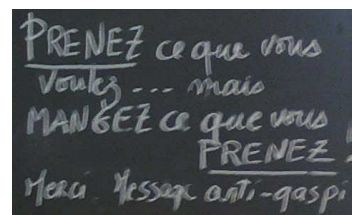 PRENEZ ce que vous
voulez... mais
MANGEZ ce que vous
PRENEZ !
Merci Message anti-gaspi